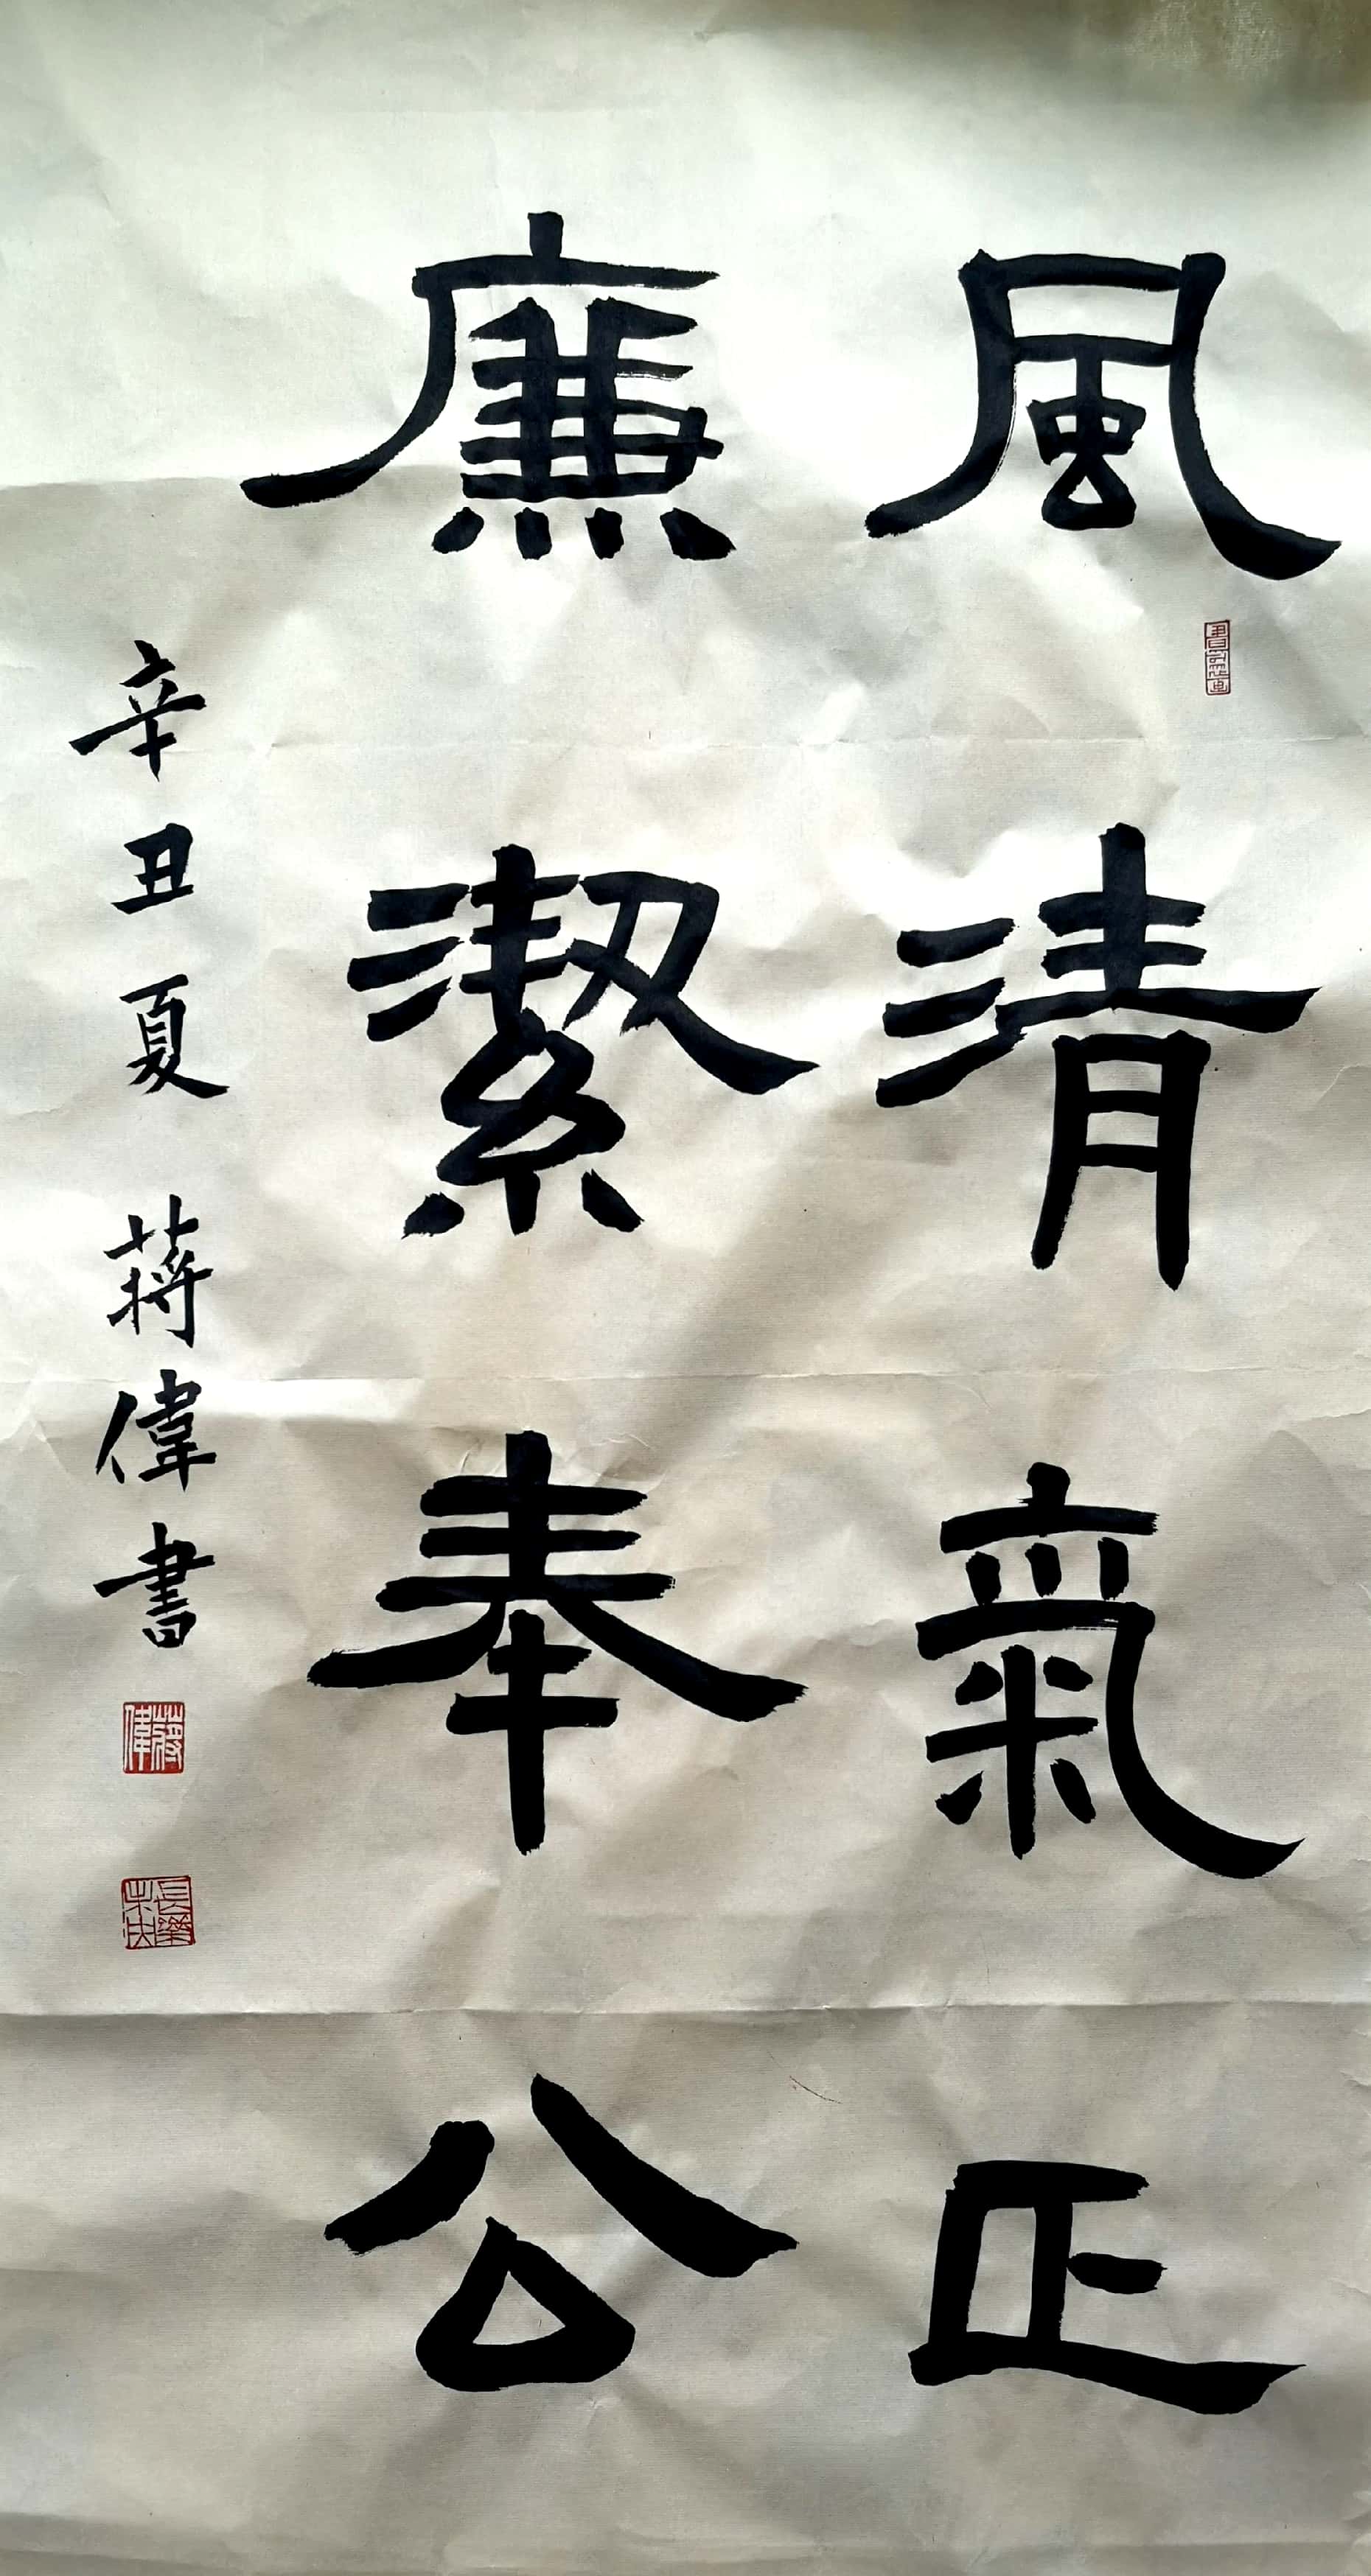 風清氣正
廉潔奉公
辛丑夏 蔣偉書
蔣偉
長樂未央